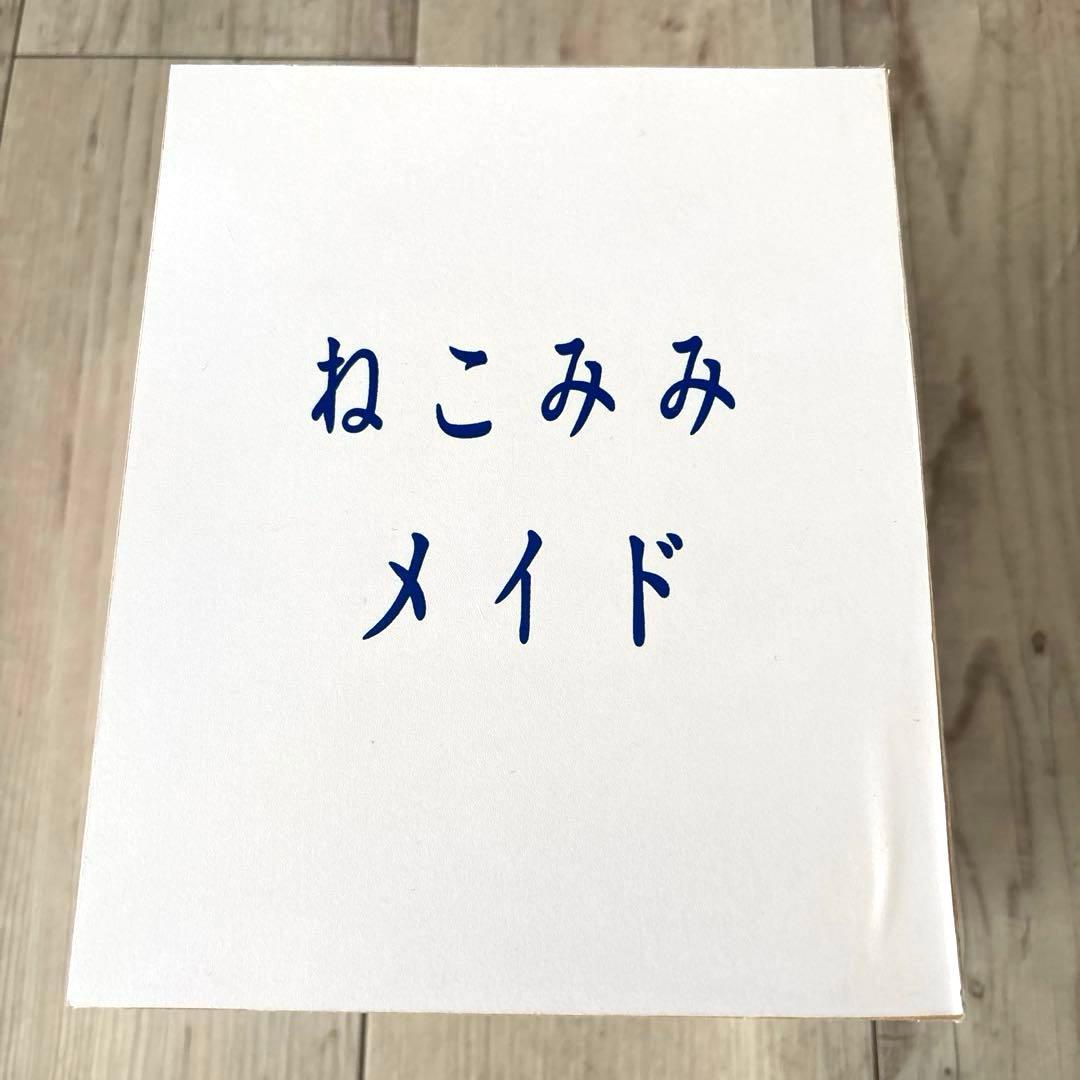 ねこみみ
メイド